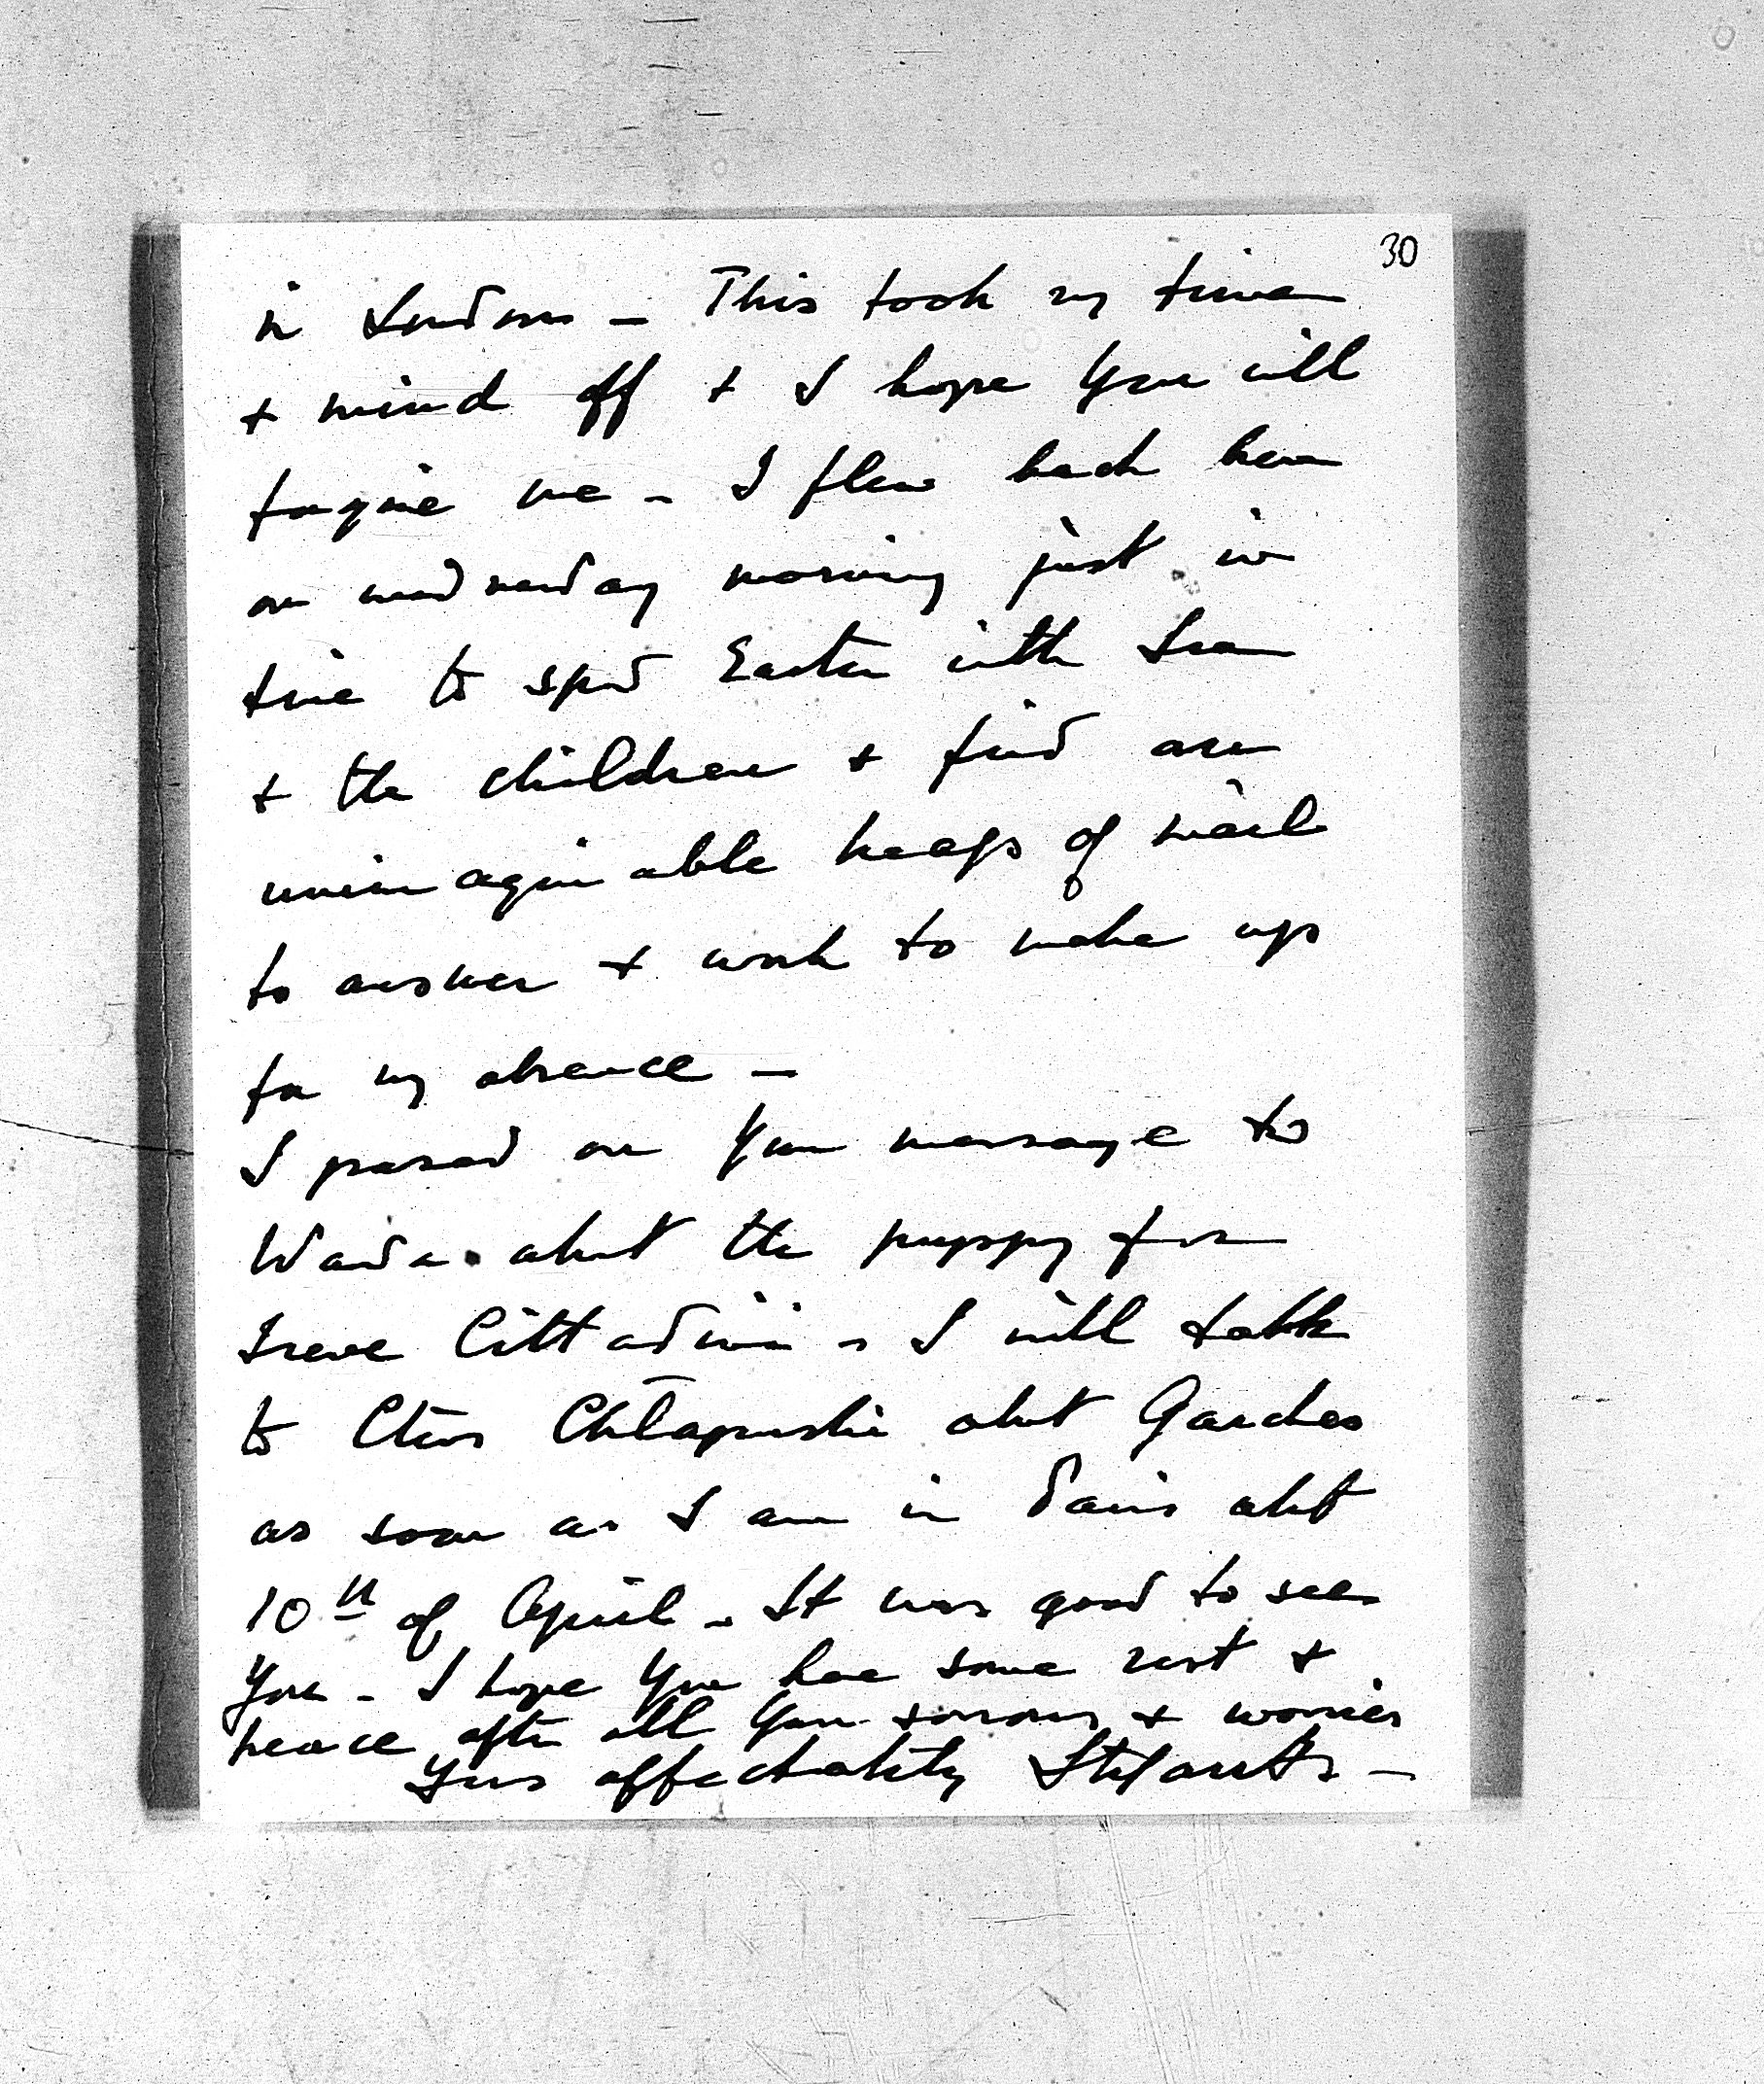 30
in London – This took my time
+ mind off + I hope you will
forgive me – I flew back here
on wednesday morning just in
time to spend Easter with
+ the children + find an
unimaginable heaps of mail
to answer + work to make up
for my absence –
I passed on your message to
Wanda about the puppy for
Irene Cittadini – I will talk
to Chlapowski about Garches
as soon as I am in Paris abt
10th of April – It was good to see
you – I hope you have some rest +
peace after all your sorrows + worries
Yours affectionately